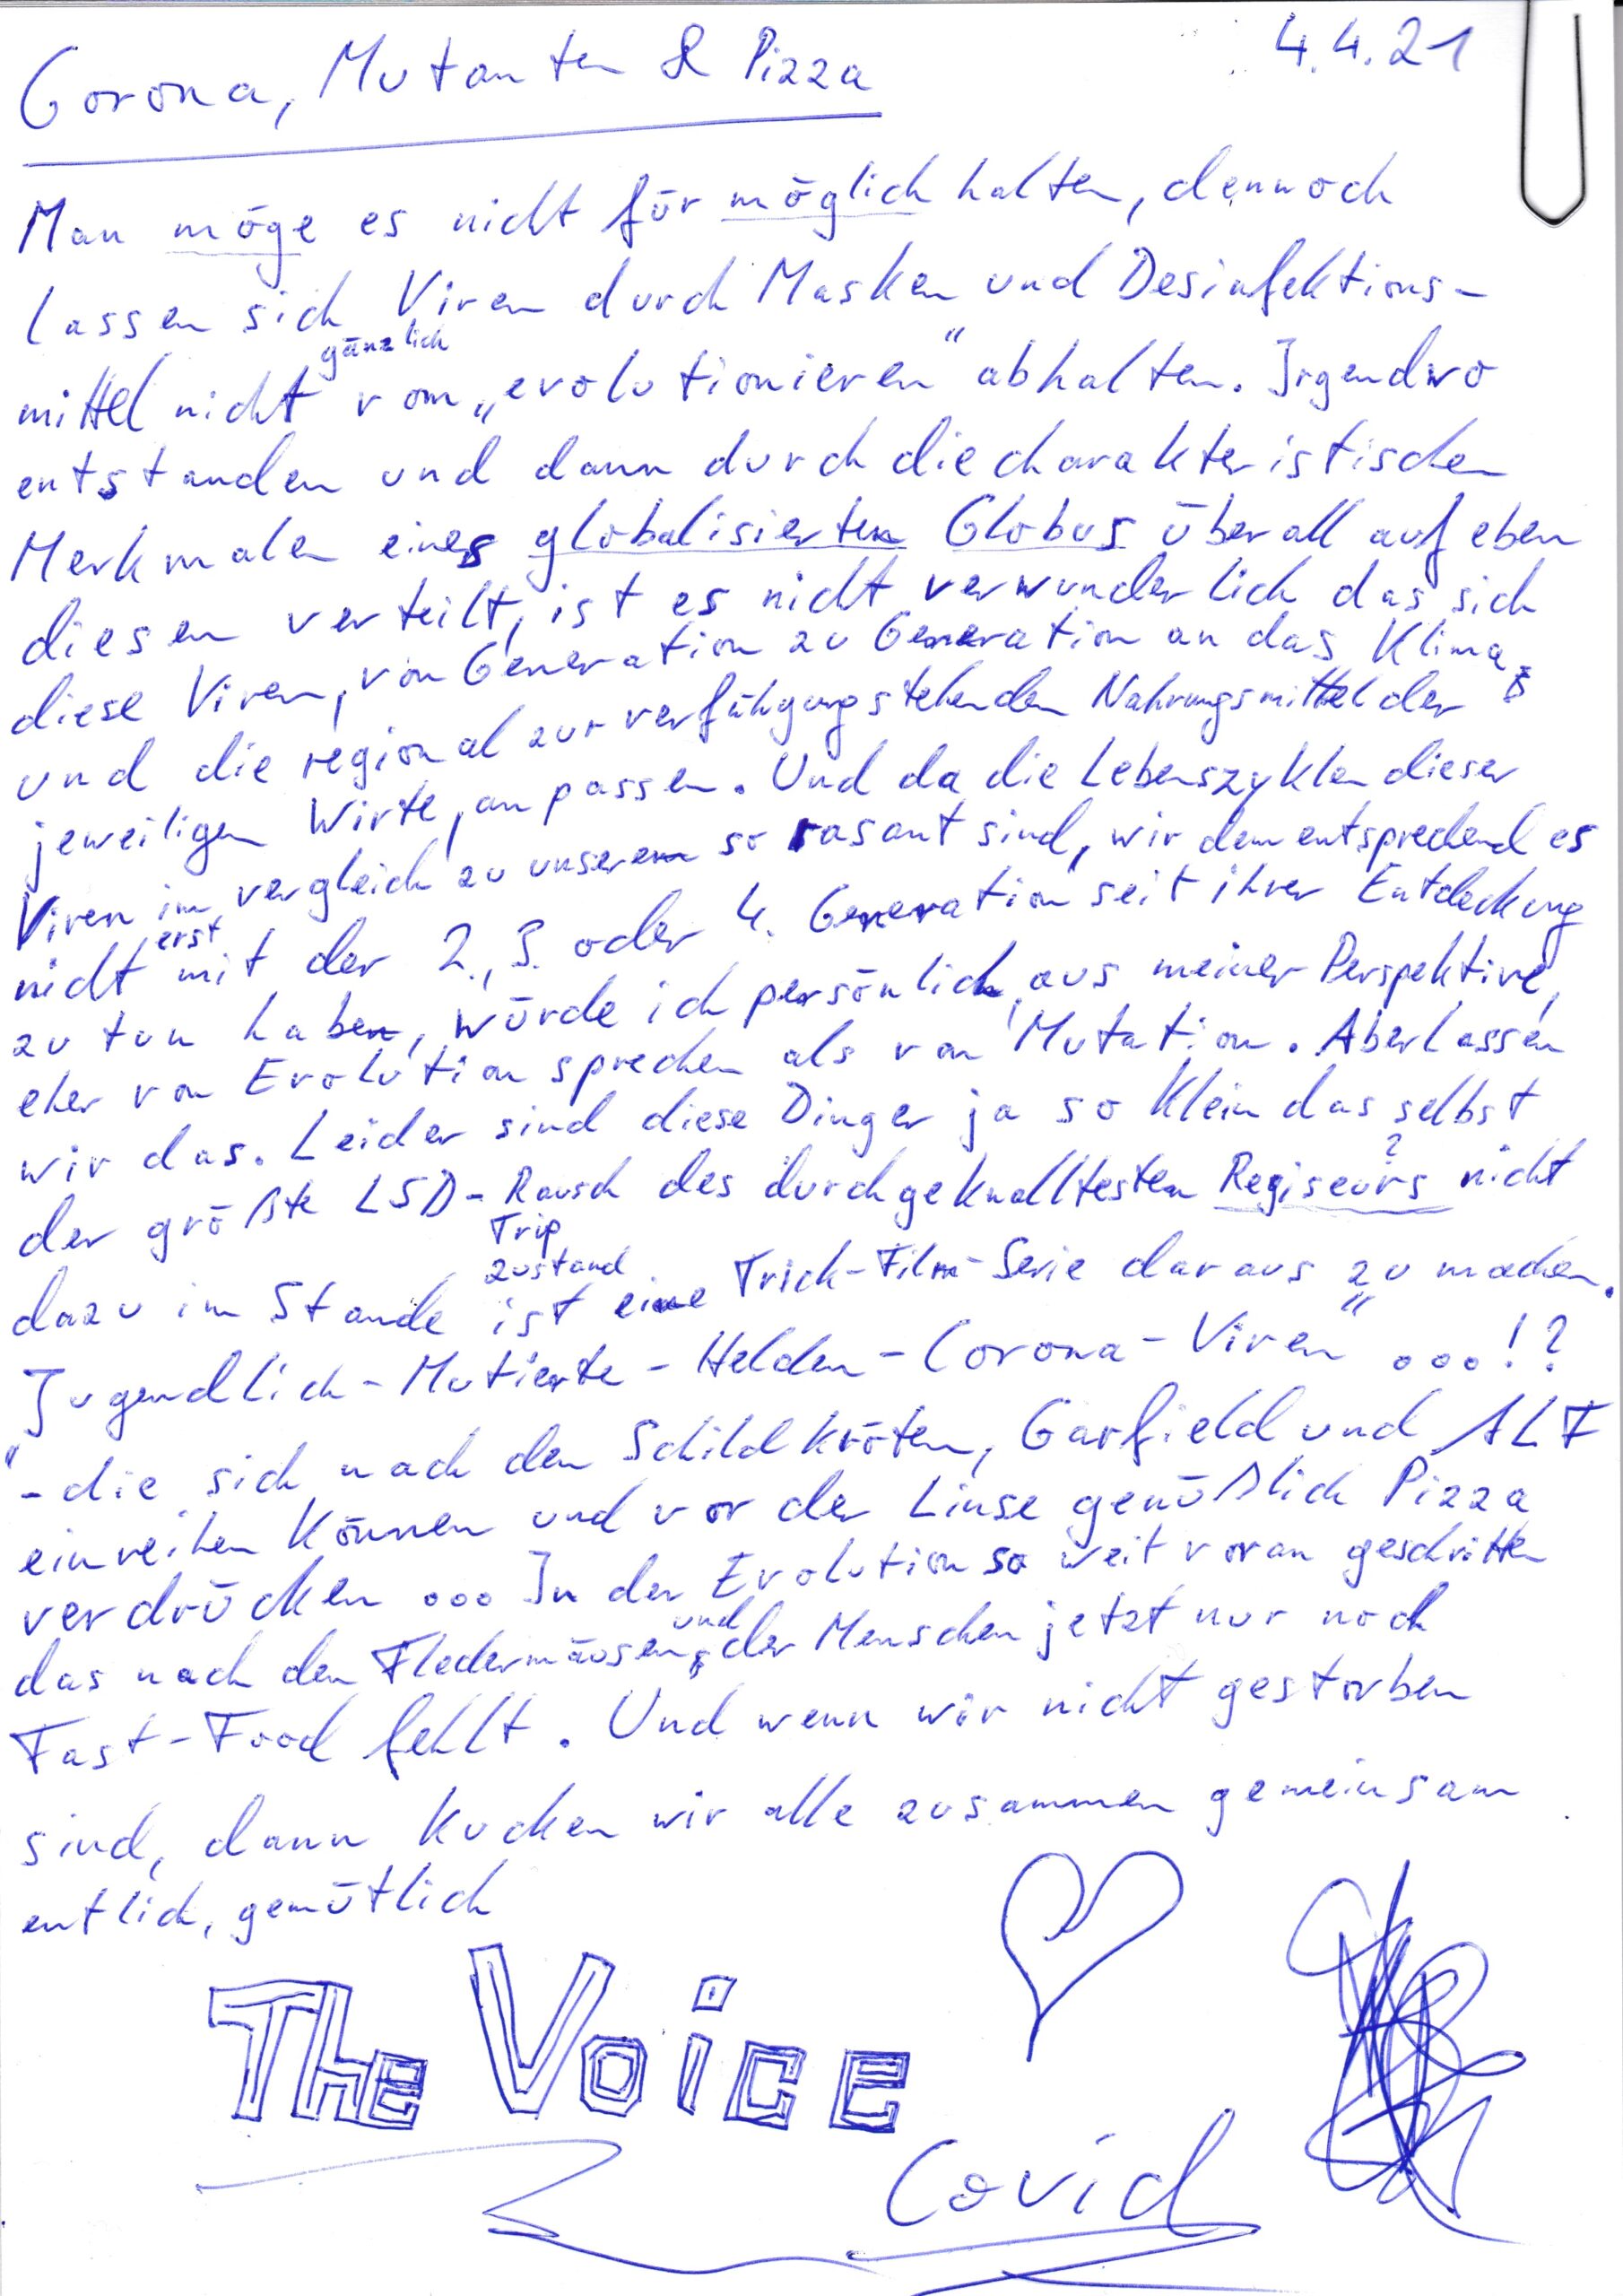 4.4.21
Corona, Mutanten & Pizza
Man möge es nicht für möglich halten, dennoch
lassen sich Viren durch Masken und Desinfektions-
gänzlich
mittel nicht vom „evolutionieren“ abhalten. Irgendwo
entstanden und dann durch die charakteristischen
Merkmalen eines globalisierten Globus überall auf eben
diesen verteilt, ist es nicht verwunderlich das sich
diese Viren, von Generation zu Generation an das Klima,
und die regional zur verfühgung stehenden Nahrungsmittel der
jeweiligen Wirte, anpassen. Und da die Lebenszyklen dieser
Viren im vergleich zu unserem so rasant sind, wir dementsprechend es
erst
nicht mit der 2., 3. oder 4. Generation seit ihrer Entdeckung
zu tun haben, würde ich persönlich, aus meiner Perspektive,
eher von Evolution sprechen als von Mutation. Aber lassen
wir das. Leider sind diese Dinger ja so klein das selbst
der größte LSD-Rausch des durchgeknalltesten Regiseurs nicht
?
Trip
zustand
dazu im Stande ist eine Trick-Film-Serie daraus zu machen.
„Jugendlich-Mutierte-Helden-Corona-Viren“ ...!?
- die sich nach den Schildkröten, Garfield und ALF
einreihen können und vor der Linse genüßlich Pizza
verdrücken ... In der Evolution so weit voran geschritten
und
das nach den Fledermäusen, der Menschen jetzt nur noch
Fast-Food fehlt. Und wenn wir nicht gestorben
sind, dann kucken wir alle zusammen gemeinsam
entlich, gemütlich
The Voice
Covid